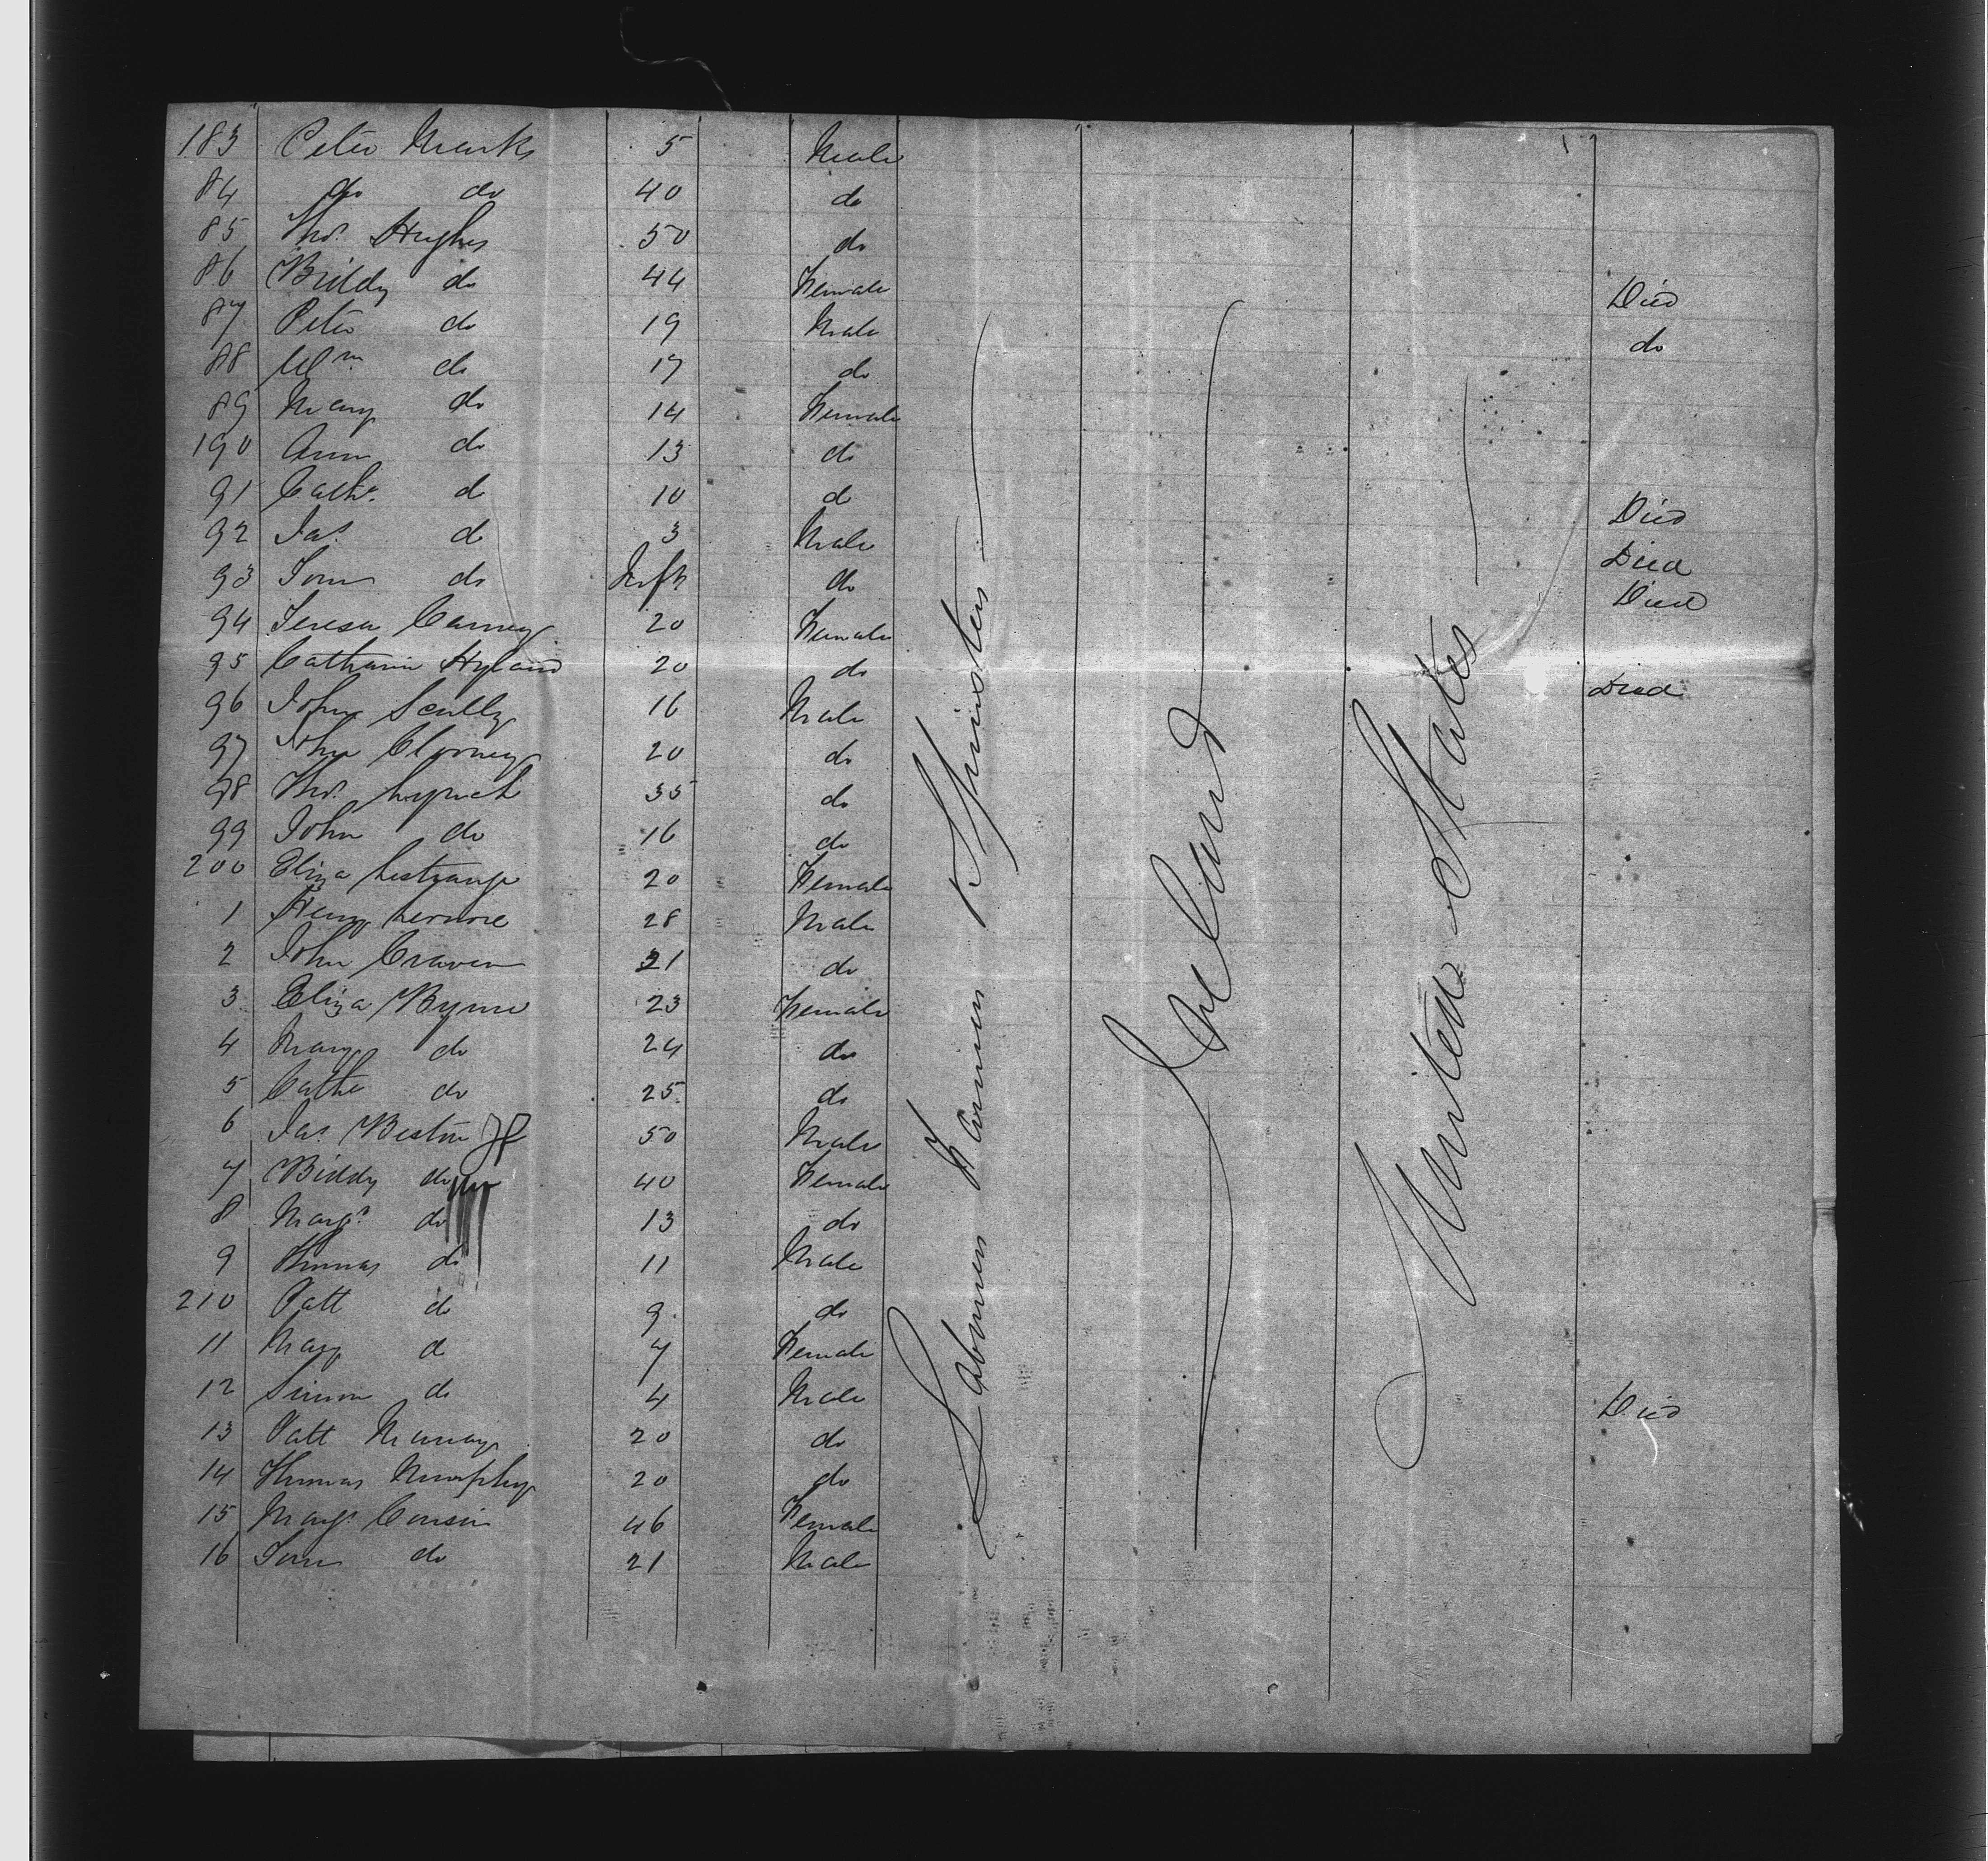 183 Peter Marks 5 Male
84 do do 40 do
85 Thos. Hughes 50 do
86 Biddy do 44 Female Died
87 Peter do 19 Male do
88 Wm. do 17 do
89 Mary do 14 Female
190 Ann do 13 do
91 Cathe. do 10 do Died
92 Jas. do 3 Male Died
93 Tom do Inft do Died
94 Teresa Carney 20 Female
95 Catharin Hyland 20 do Died
96 John Scully 16 Male
97 John 20 do
98 Thos. 35 do
99 John do 16 do
200 Eliza Lestrange 20 Female
1 Henry 28 Male
2 John Craven 21 do
3 Eliza Byrne 23 Female
4 Mary do 24 do
5 Cathe do 25 do
6 Jas. 50 Male
7 Biddy do 40 Female
8 Margt. do 13 do
9 Thomas do 11 Male
210 Patt do 9 do
11 Mary do 7 Female
12 Simon do 4 Male Died
13 Patt Murray 20 do
14 Thomas Murphy 20 do
15 Margt. Cousin 46 Female
16 Tom do 21 Male
Labourers Farmers Spinsters
Ireland
United States